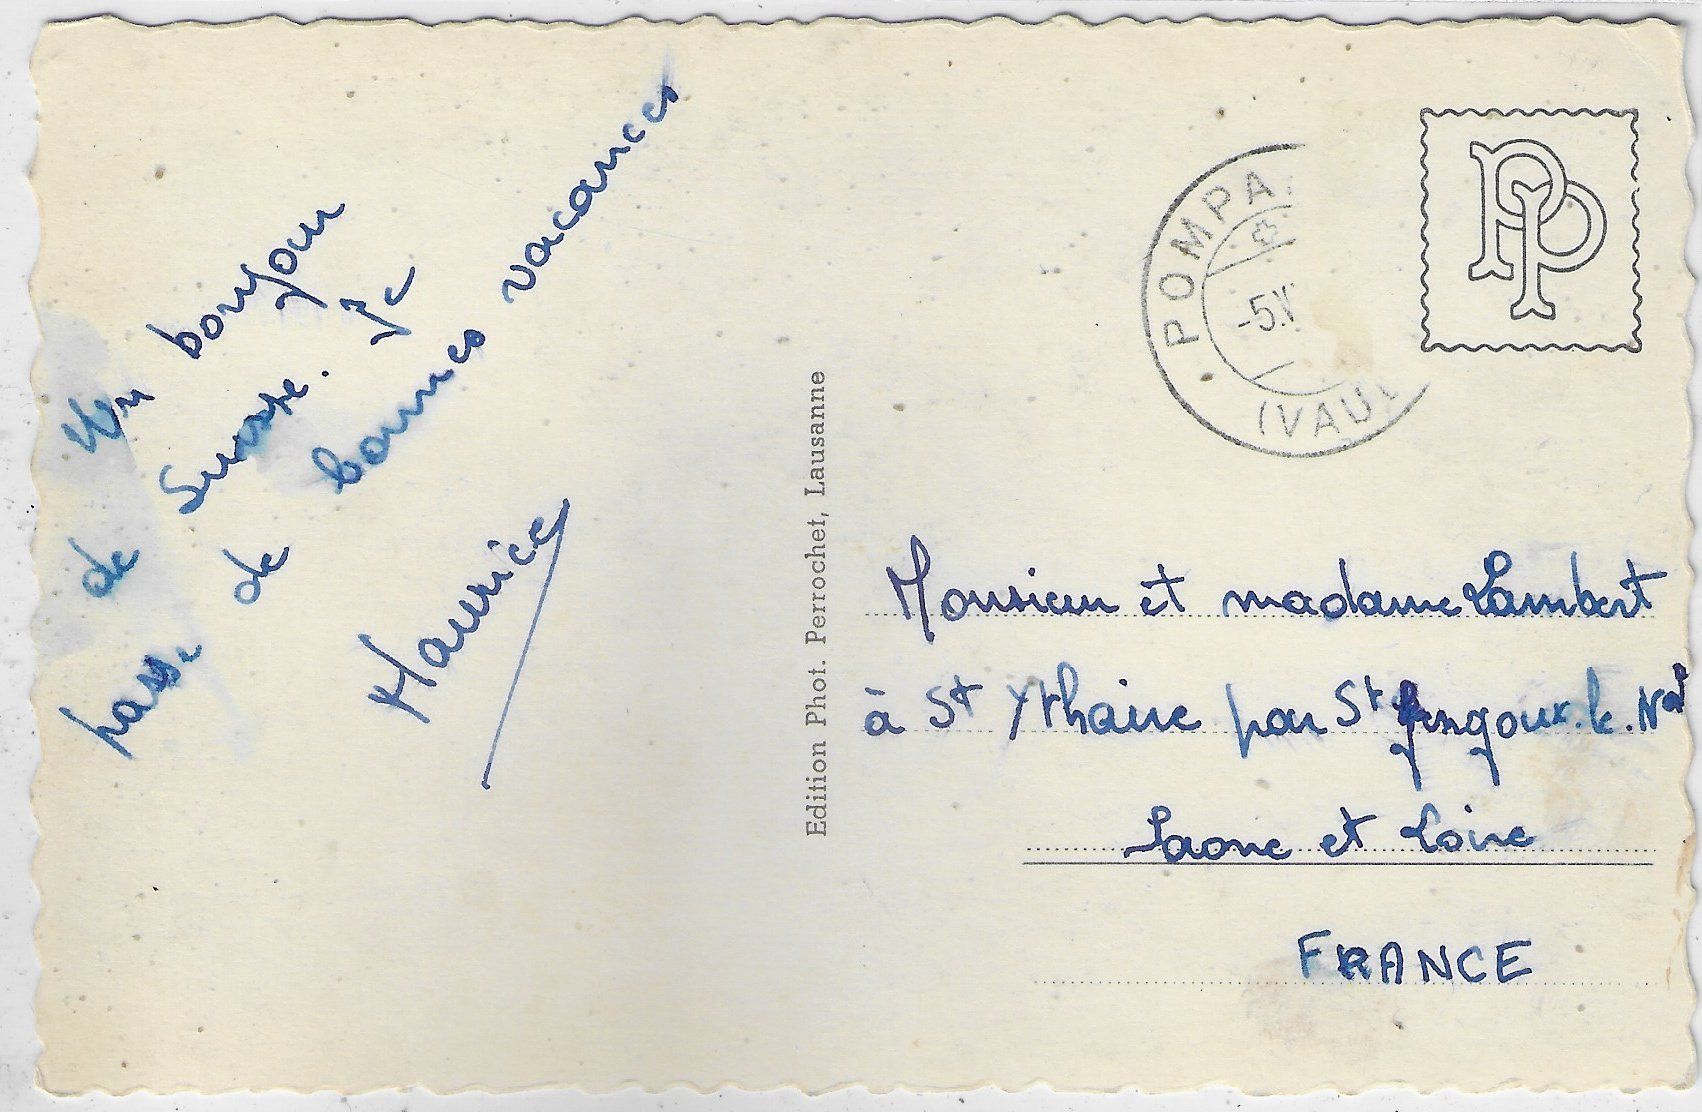 Un bonjour
de Suisse. Je
passe de bonnes vacances
Maurice
Edition Phot. Perrochet, Lausanne
POMPA
-5.V
(VAU
PP
Monsieur et madame Lambert
à St Ythaire par St Gengoux.le.Nal
Saone et Loire
FRANCE